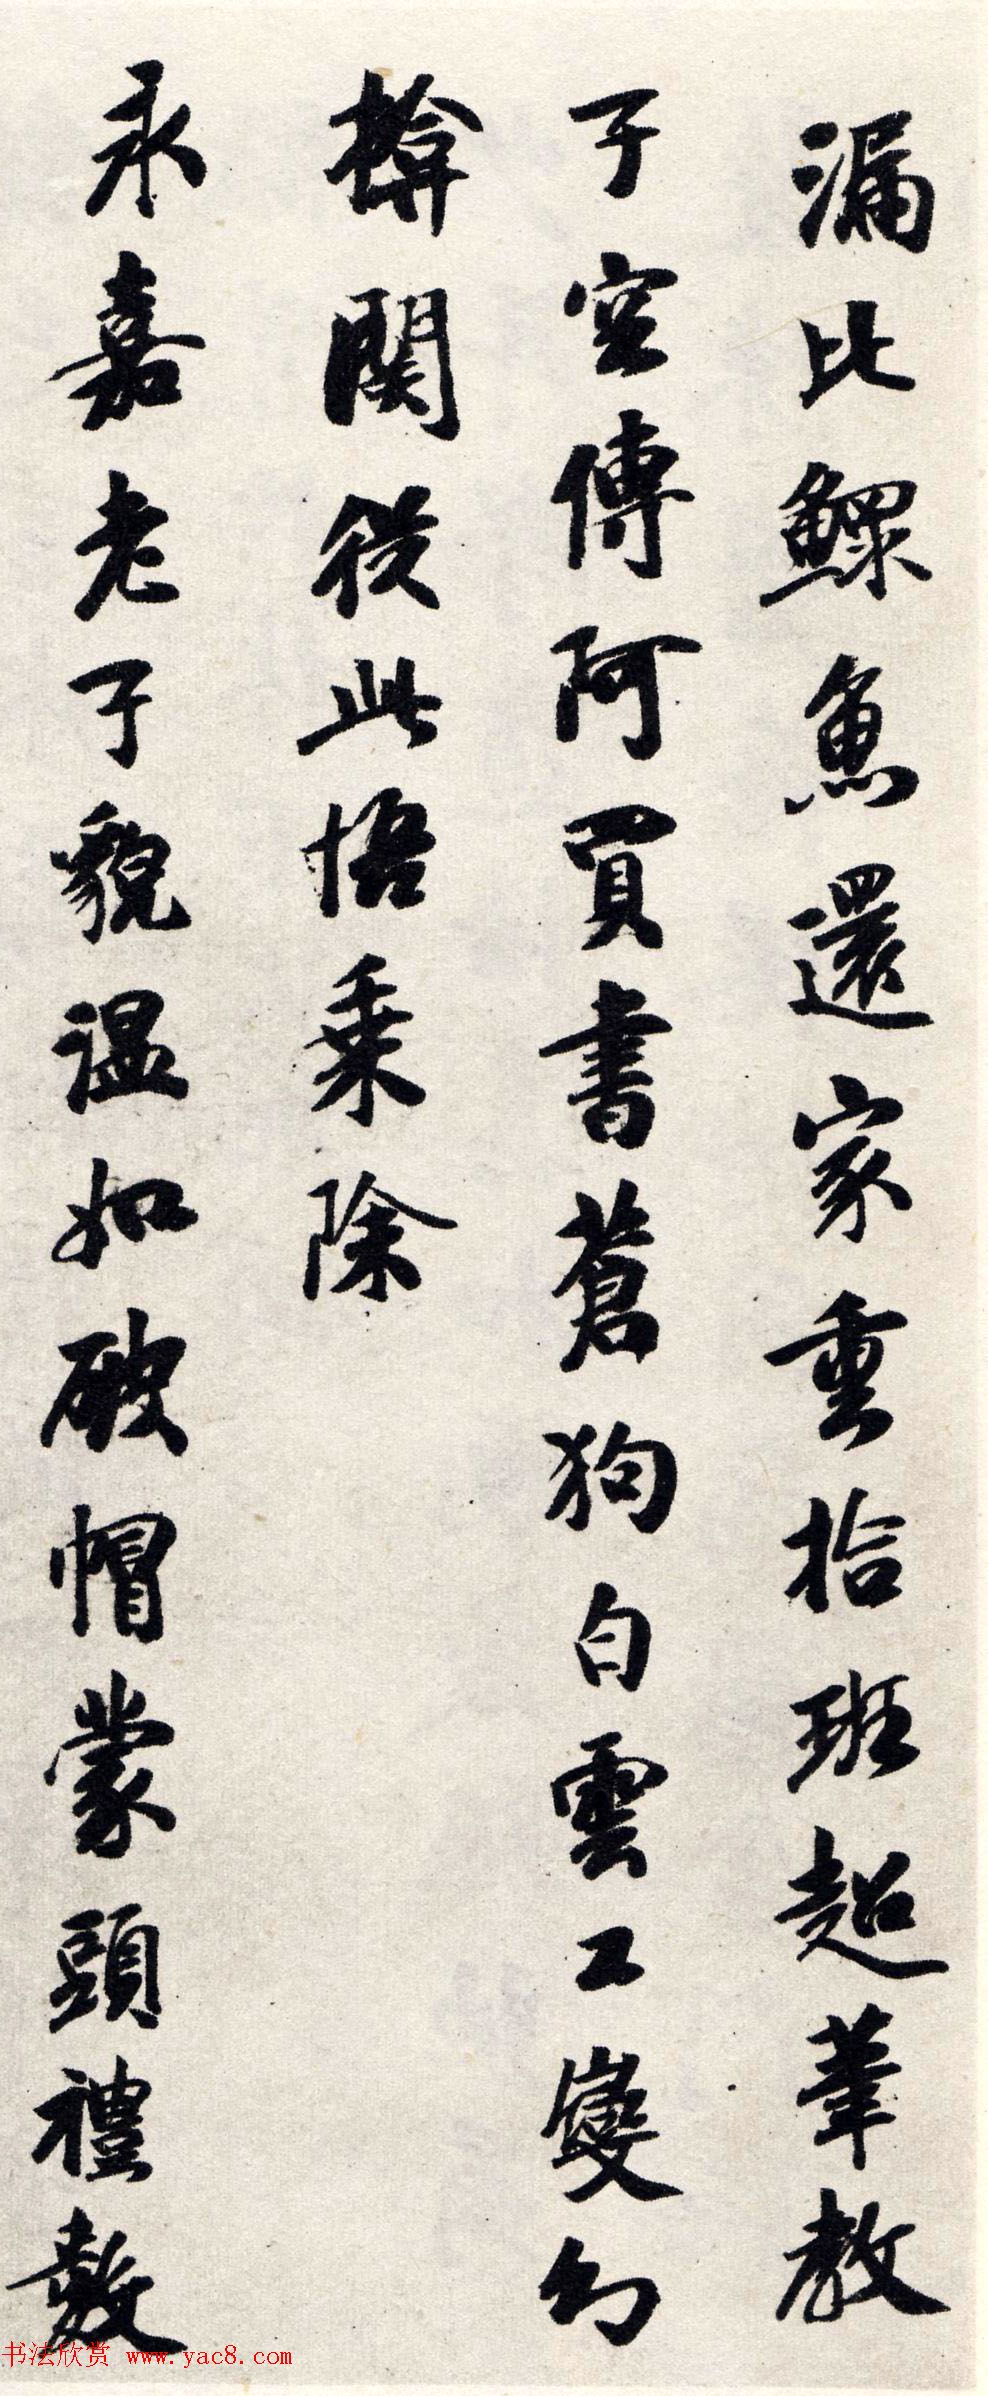 漏比鰥魚還家重拾班超筆教
子空傳阿買書蒼狗白雲工變幻
楗關從此悟乘除
永嘉老子貌温如破帽蒙頭禮數
书法欣赏 www.yac8.com